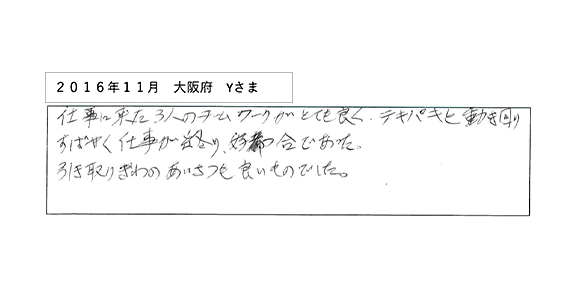 2016年11月 大阪府 Yさま
仕事に来た3人のチームワークがとても良く、テキパキと動き回り
すばやく仕事が終り、好都合であった。
引き取りぎわのあいさつも良いものでした。